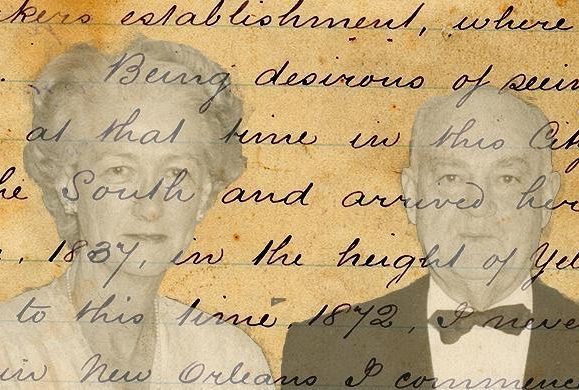 kers establishment, where
. Being desirous of seein
at that time in this City
he South and arrived her
, 1837, in the height of Yel
to this time, 1872, I neve
in New Orleans I commenc